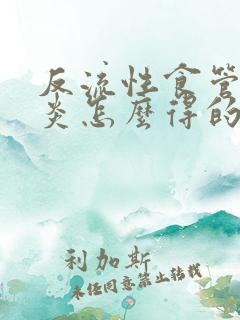 反流性食管
炎怎麼得的
利加斯
未经同意禁止转载